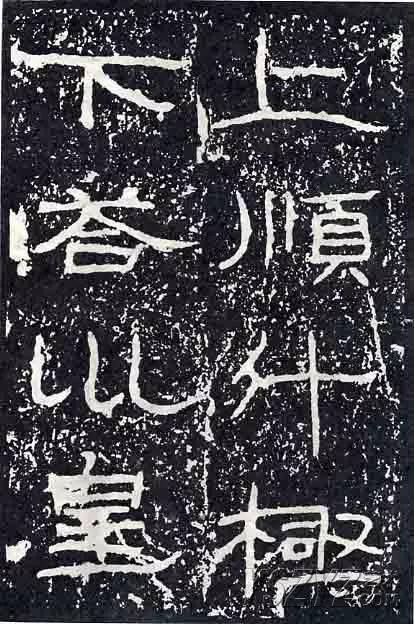 上順斗極
下荅巛皇